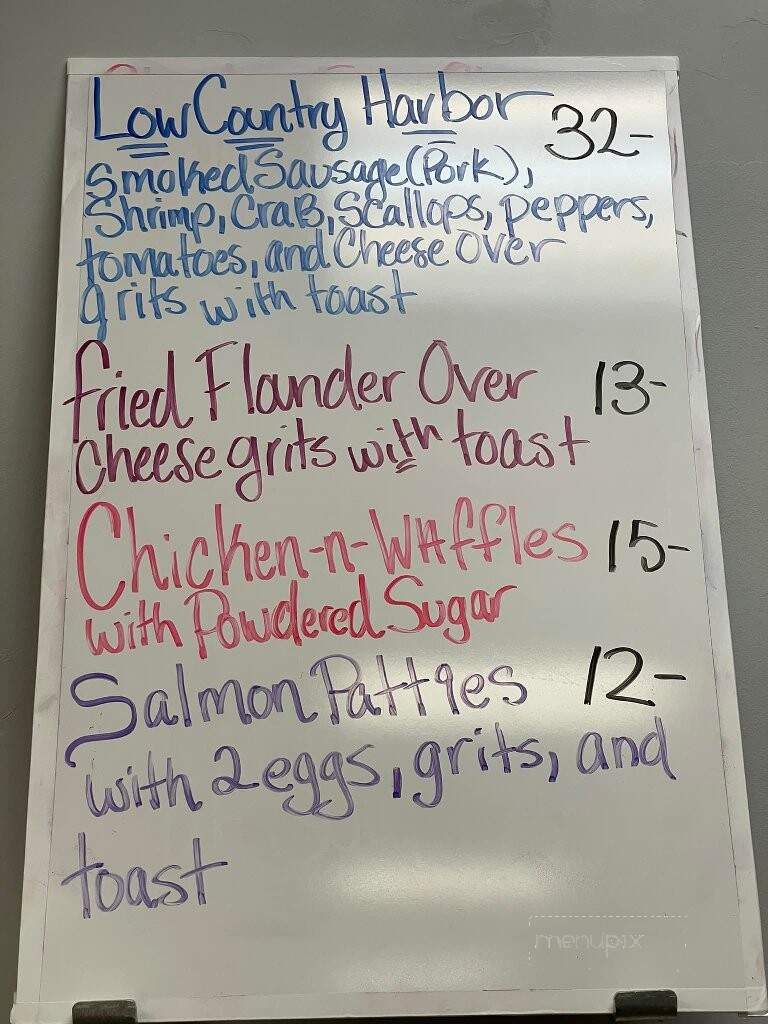 Low Country Harbor 32-
Smoked Sausage (Pork),
Shrimp, CraB, Scallops, peppers,
tomatoes, and Cheese Over
grits with toast
fried Flander Over 13-
Cheese grits with toast
Chicken-n-WAffles 15-
with Powdered Sugar
Salmon Patties 12-
with 2 eggs, grits, and
toast
menupix